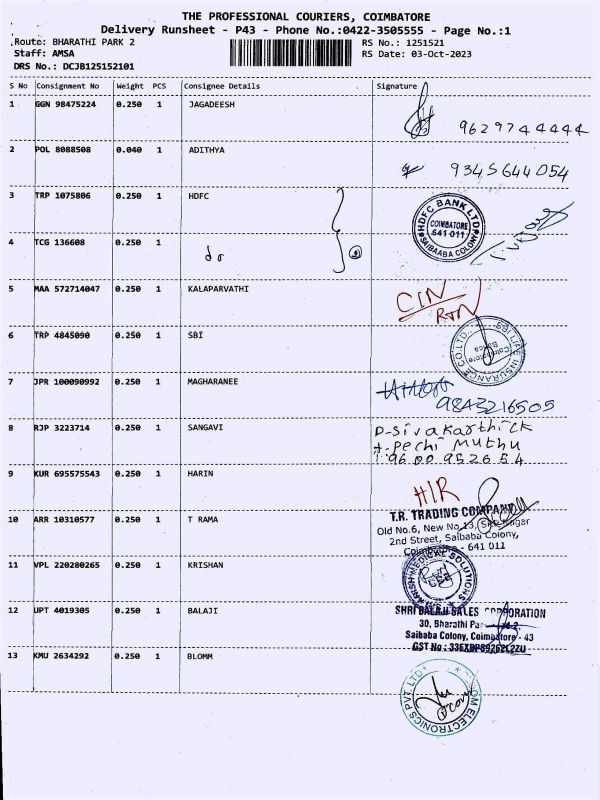 THE PROFESSIONAL COURIERS, COIMBATORE
Delivery Runsheet - P43 - Phone No.:0422-3505555 - Page No.:1
Route: BHARATHI PARK 2 RS No.: 1251521
Staff: AMSA RS Date: 03-Oct-2023
DRS No.: DCJB125152101
S No Consignment No Weight PCS Consignee Details Signature
1 GGN 98475224 0.250 1 JAGADEESH
9629744444
2 POL 8088508 0.040 1 ADITHYA
9345644054
3 TRP 1075806 0.250 1 HDFC
HDFC BANK LTD
COIMBATORE
641 011
SAIBAABA COLONY
4 TCG 136608 0.250 1
do
5 MAA 572714047 0.250 1 KALAPARVATHI
CIN
RTN
6 TRP 4845090 0.250 1 SBI
SBI LIFE INSURANCE CO.LTD.
Coimbatore
7 JPR 100090992 0.250 1 MAGHARANEE
9843216505
8 RJP 3223714 0.250 1 SANGAVI
P-sivakarthick
Pechi Muthu
9600952654
9 KUR 695575543 0.250 1 HARIN
H/R
10 ARR 10310577 0.250 1 T RAMA
T.R. TRADING COMPANY
Old No.6, New No.13, Nagar
2nd Street, Saibaba Colony,
Coimbatore - 641 011
11 VPL 220280265 0.250 1 KRISHAN
MEDICAL SOLUTIONS
CBE
12 UPT 4019305 0.250 1 BALAJI
SHRI BALAJI SALES CORPORATION
30, Bharathi
Saibaba Colony, Coimbatore - 43
GST No :
13 KMU 2634292 0.250 1 BLOMM
ELECTRONICS PVT.LTD